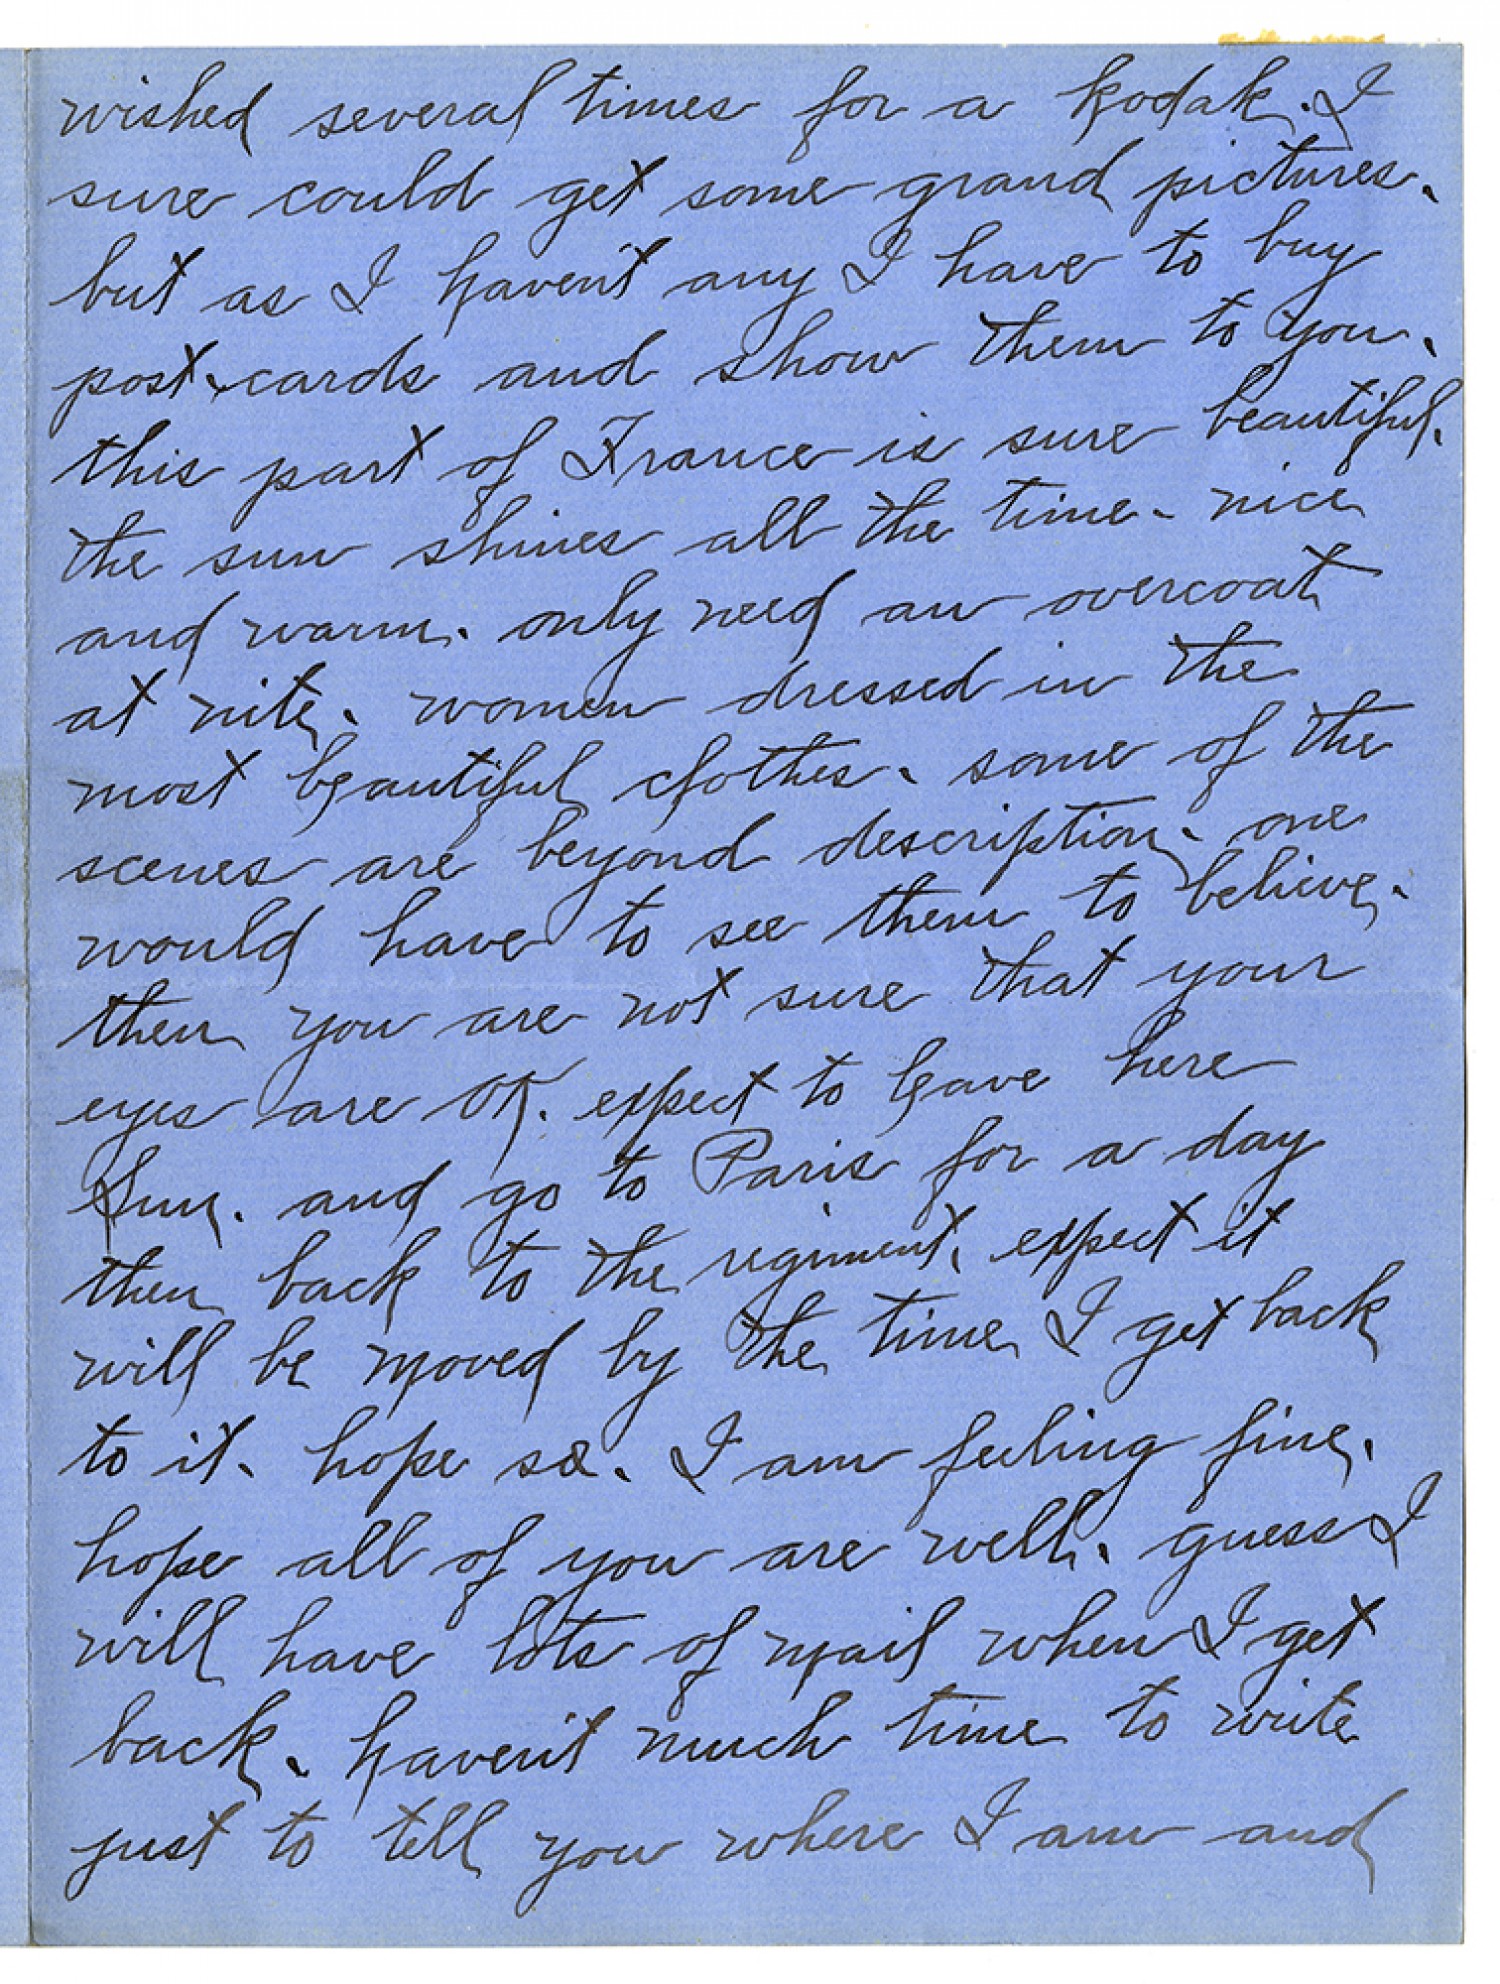 wished several times for a kodak. I
sure could get some grand pictures.
but as I haven't any I have to buy
post-cards and show them to you.
this part of France is sure beautiful.
the sun shines all the time. nice
and warm. only need an overcoat
at nite. women dressed in the
most beautiful clothes. some of the
scenes are beyond description. one
would have to see them to believe.
then you are not sure that your
eyes are OK. expect to leave here
Sun. and go to Paris for a day
then back to the regiment. expect it
will be moved by the time I get back
to it. hope so. I am feeling fine.
hope all of you are well. guess I
will have lots of mail when I get
back. haven't much time to write
just to tell you where I am and